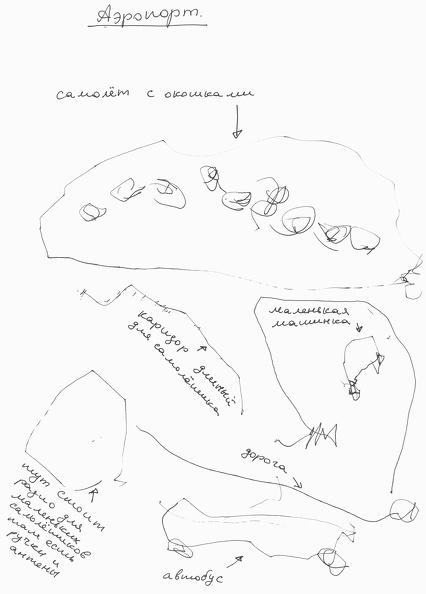 Аэропорт.
самолёт с окошками
маленькая
машинка
каридор длиный
для самолётика
дорога
тут стоит
радио для
маленьких
самолётиков
там есть
ручки и
антены
автобус